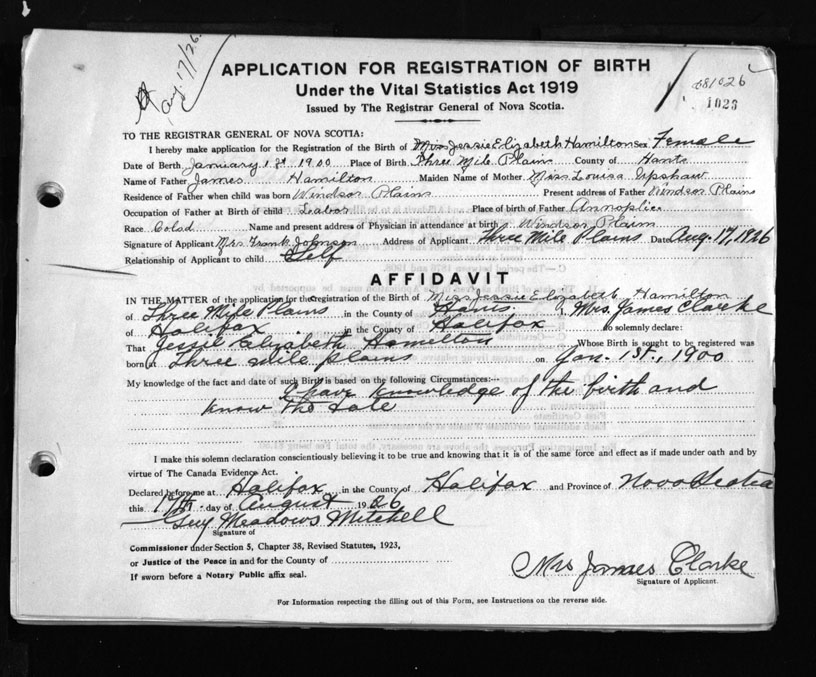 Aug 17/26.
APPLICATION FOR REGISTRATION OF BIRTH
681026
Under the Vital Statistics Act 1919
1026
Issued by The Registrar General of Nova Scotia.
TO THE REGISTRAR GENERAL OF NOVA SCOTIA:
I hereby make application for the Registration of the Birth of Miss Jessie Elizabeth Hamilton Sex Female
Date of Berth January 1st 1900 Place of Birth Three Mile Plain County of Hants
Name of Father James Hamilton Maiden Name of Mother Miss Louisa Upshaw
Residence of Father when child was born Windsor Plains Present address of Father Windsor Plain
Occupation of Father at Birth of child Labor Place of birth of Father Annoplies
Race Cold Name and present address of Physician in attendance at birth Windsor Plain
Signature of Applicant Mrs Frank Johnson Address of Applicant Three Mile Plains Date Aug. 17, 1926
Relationship of Applicant to child Self
AFFIDAVIT
IN THE MATTER of the application for the registration of the Birth of Miss Jessie Elizabeth Hamilton
of Three Mile Plains in the County of Hants I, Mrs. James Clarke
of Halifax in the County of Halifax do solemnly declare:
That Jessie Elizabeth Hamilton Whose Birth is sought to be registered was
born at Three mile plains on Jan. 1st, 1900
My knowledge of the fact and date of such Birth is based on the following Circumstances:--
I have knowledge of the birth and
know the date
I make this solemn declaration conscientiously believing it to be true and knowing that it is of the same force and effect as if made under oath and by
virtue of The Canada Evidence Act.
Declared before me at Halifax in the County of Halifax and Province of Nova Scotia
this 17th day of August 1926
Guy Meadows Mitchell
Signature of
Commissioner under Section 5, Chapter 38, Revised Statutes, 1923,
or Justice of the Peace in and for the County of
Mrs James Clarke
If sworn before a Notary Public affix seal.
Signature of Applicant.
For Information respecting the filling out of this Form, see Instructions on the reverse side.